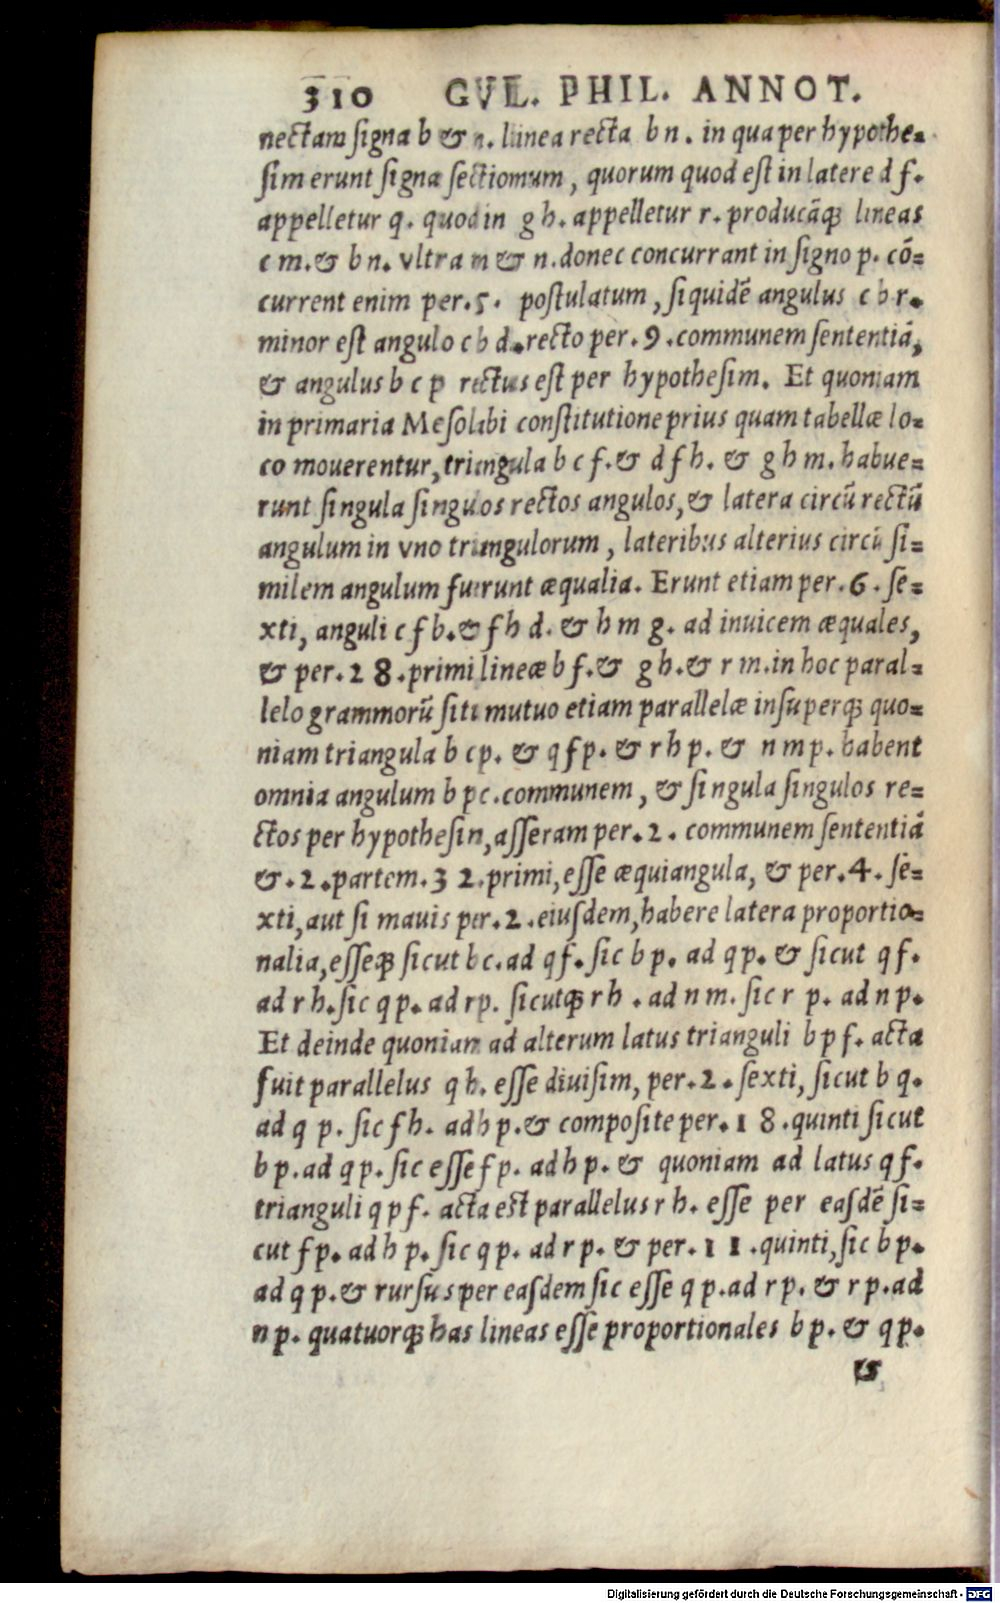 310 GVL. PHIL. ANNOT.
nectam signa b & n. linea recta b n. in qua per hypothe=
sim erunt signa sectionum, quorum quod est in latere d f.
appelletur q. quod in g h. appelletur r. producãq; lineas
c m. & b n. vltra m & n. donec concurrant in signo p. cõ=
current enim per. 5. postulatum, siquidẽ angulus c b r.
minor est angulo c b d. recto per. 9. communem sententiã,
& angulus b c p rectus est per hypothesim. Et quoniam
in primaria Mesolabi constitutione prius quam tabellæ lo=
co mouerentur, triangula b c f. & d f h. & g h m. habue=
runt singula singulos rectos angulos, & latera circũ rectũ
angulum in vno triangulorum, lateribus alterius circũ si=
milem angulum fuerunt æqualia. Erunt etiam per. 6. se=
xti, anguli c f b. & f h d. & h m g. ad inuicem æquales,
& per. 28. primi lineæ b f. & g h. & r m. in hoc paral=
lelogrammorũ situ mutuo etiam parallelæ insuperq; quo=
niam triangula b c p. & q f p. & r h p. & n m p. habent
omnia angulum b p c. communem, & singula singulos re=
ctos per hypothesin, asseram per. 2. communem sententiã
&. 2. partem. 32. primi, esse æquiangula, & per. 4. se=
xti, aut si mauis per. 2. eiusdem, habere latera proportio=
nalia, esseq; sicut b c. ad q f. sic b p. ad q p. & sicut q f.
ad r h. sic q p. ad r p. sicutq; r h. ad n m. sic r p. ad n p.
Et deinde quoniam ad alterum latus trianguli b p f. acta
fuit parallelus q h. esse diuisim, per. 2. sexti, sicut b q.
ad q p. sic f h. ad h p. & composite per. 18. quinti sicut
b p. ad q p. sic esse f p. ad h p. & quoniam ad latus q f.
trianguli q p f. acta est parallelus r h. esse per easdẽ si=
cut f p. ad h p. sic q p. ad r p. & per. 11. quinti, sic b p.
ad q p. & rursus per easdem sic esse q p. ad r p. & r p. ad
n p. quatuorq; has lineas esse proportionales b p. & q p.
&
Digitalisierung gefördert durch die Deutsche Forschungsgemeinschaft - DFG